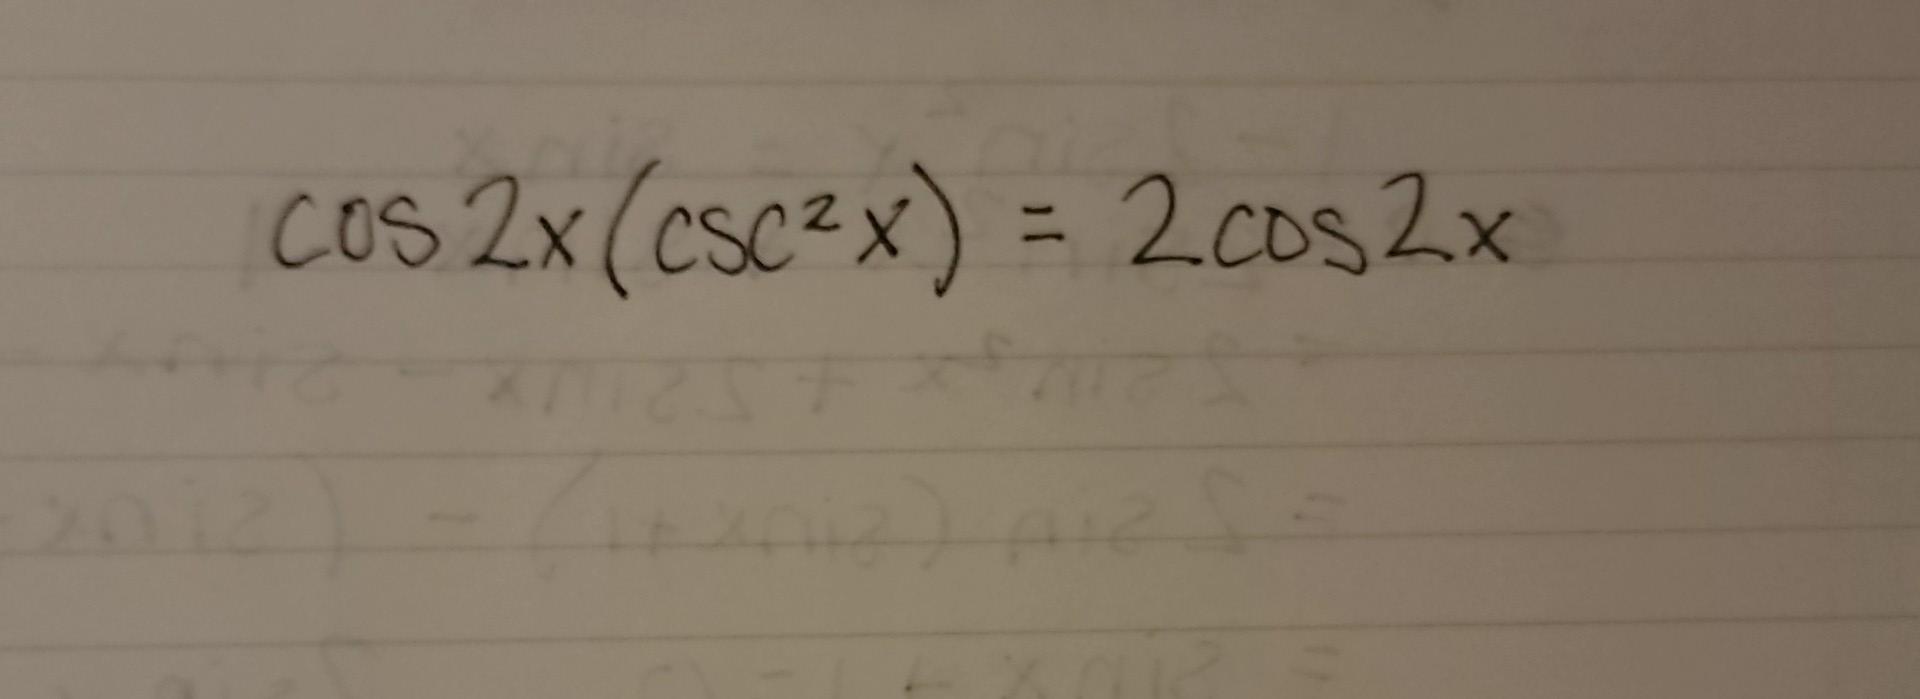 cos 2x(csc²x) = 2cos2x